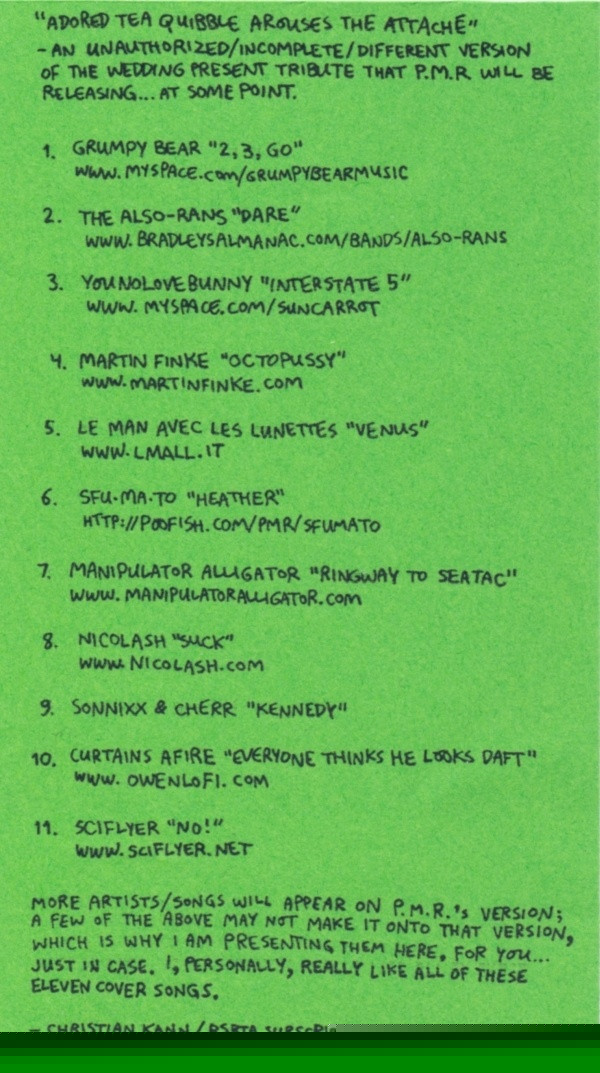 "ADORED TEA QUIBBLE AROUSES THE ATTACHÉ"
- AN UNAUTHORIZED/INCOMPLETE/DIFFERENT VERSION
OF THE WEDDING PRESENT TRIBUTE THAT P.M.R WILL BE
RELEASING... AT SOME POINT.
1. GRUMPY BEAR "2, 3, GO"
WWW.MYSPACE.COM/GRUMPYBEARMUSIC
2. THE ALSO-RANS "DARE"
WWW.BRADLEYSALMANAC.COM/BANDS/ALSO-RANS
3. YOUNOLOVEBUNNY "INTERSTATE 5"
WWW.MYSPACE.COM/SUNCARROT
4. MARTIN FINKE "OCTOPUSSY"
WWW.MARTINFINKE.COM
5. LE MAN AVEC LES LUNETTES "VENUS"
WWW.LMALL.IT
6. SFU·MA·TO "HEATHER"
HTTP://POOFISH.COM/PMR/SFUMATO
7. MANIPULATOR ALLIGATOR "RINGWAY TO SEATAC"
WWW.MANIPULATORALLIGATOR.COM
8. NICOLASH "SUCK"
WWW.NICOLASH.COM
9. SONNIXX & CHERR "KENNEDY"
10. CURTAINS AFIRE "EVERYONE THINKS HE LOOKS DAFT"
WWW.OWENLOFI.COM
11. SCIFLYER "NO!"
WWW.SCIFLYER.NET
MORE ARTISTS/SONGS WILL APPEAR ON P.M.R.'s VERSION;
A FEW OF THE ABOVE MAY NOT MAKE IT ONTO THAT VERSION,
WHICH IS WHY I AM PRESENTING THEM HERE, FOR YOU...
JUST IN CASE. I, PERSONALLY, REALLY LIKE ALL OF THESE
ELEVEN COVER SONGS.
- CHRISTIAN KANN /